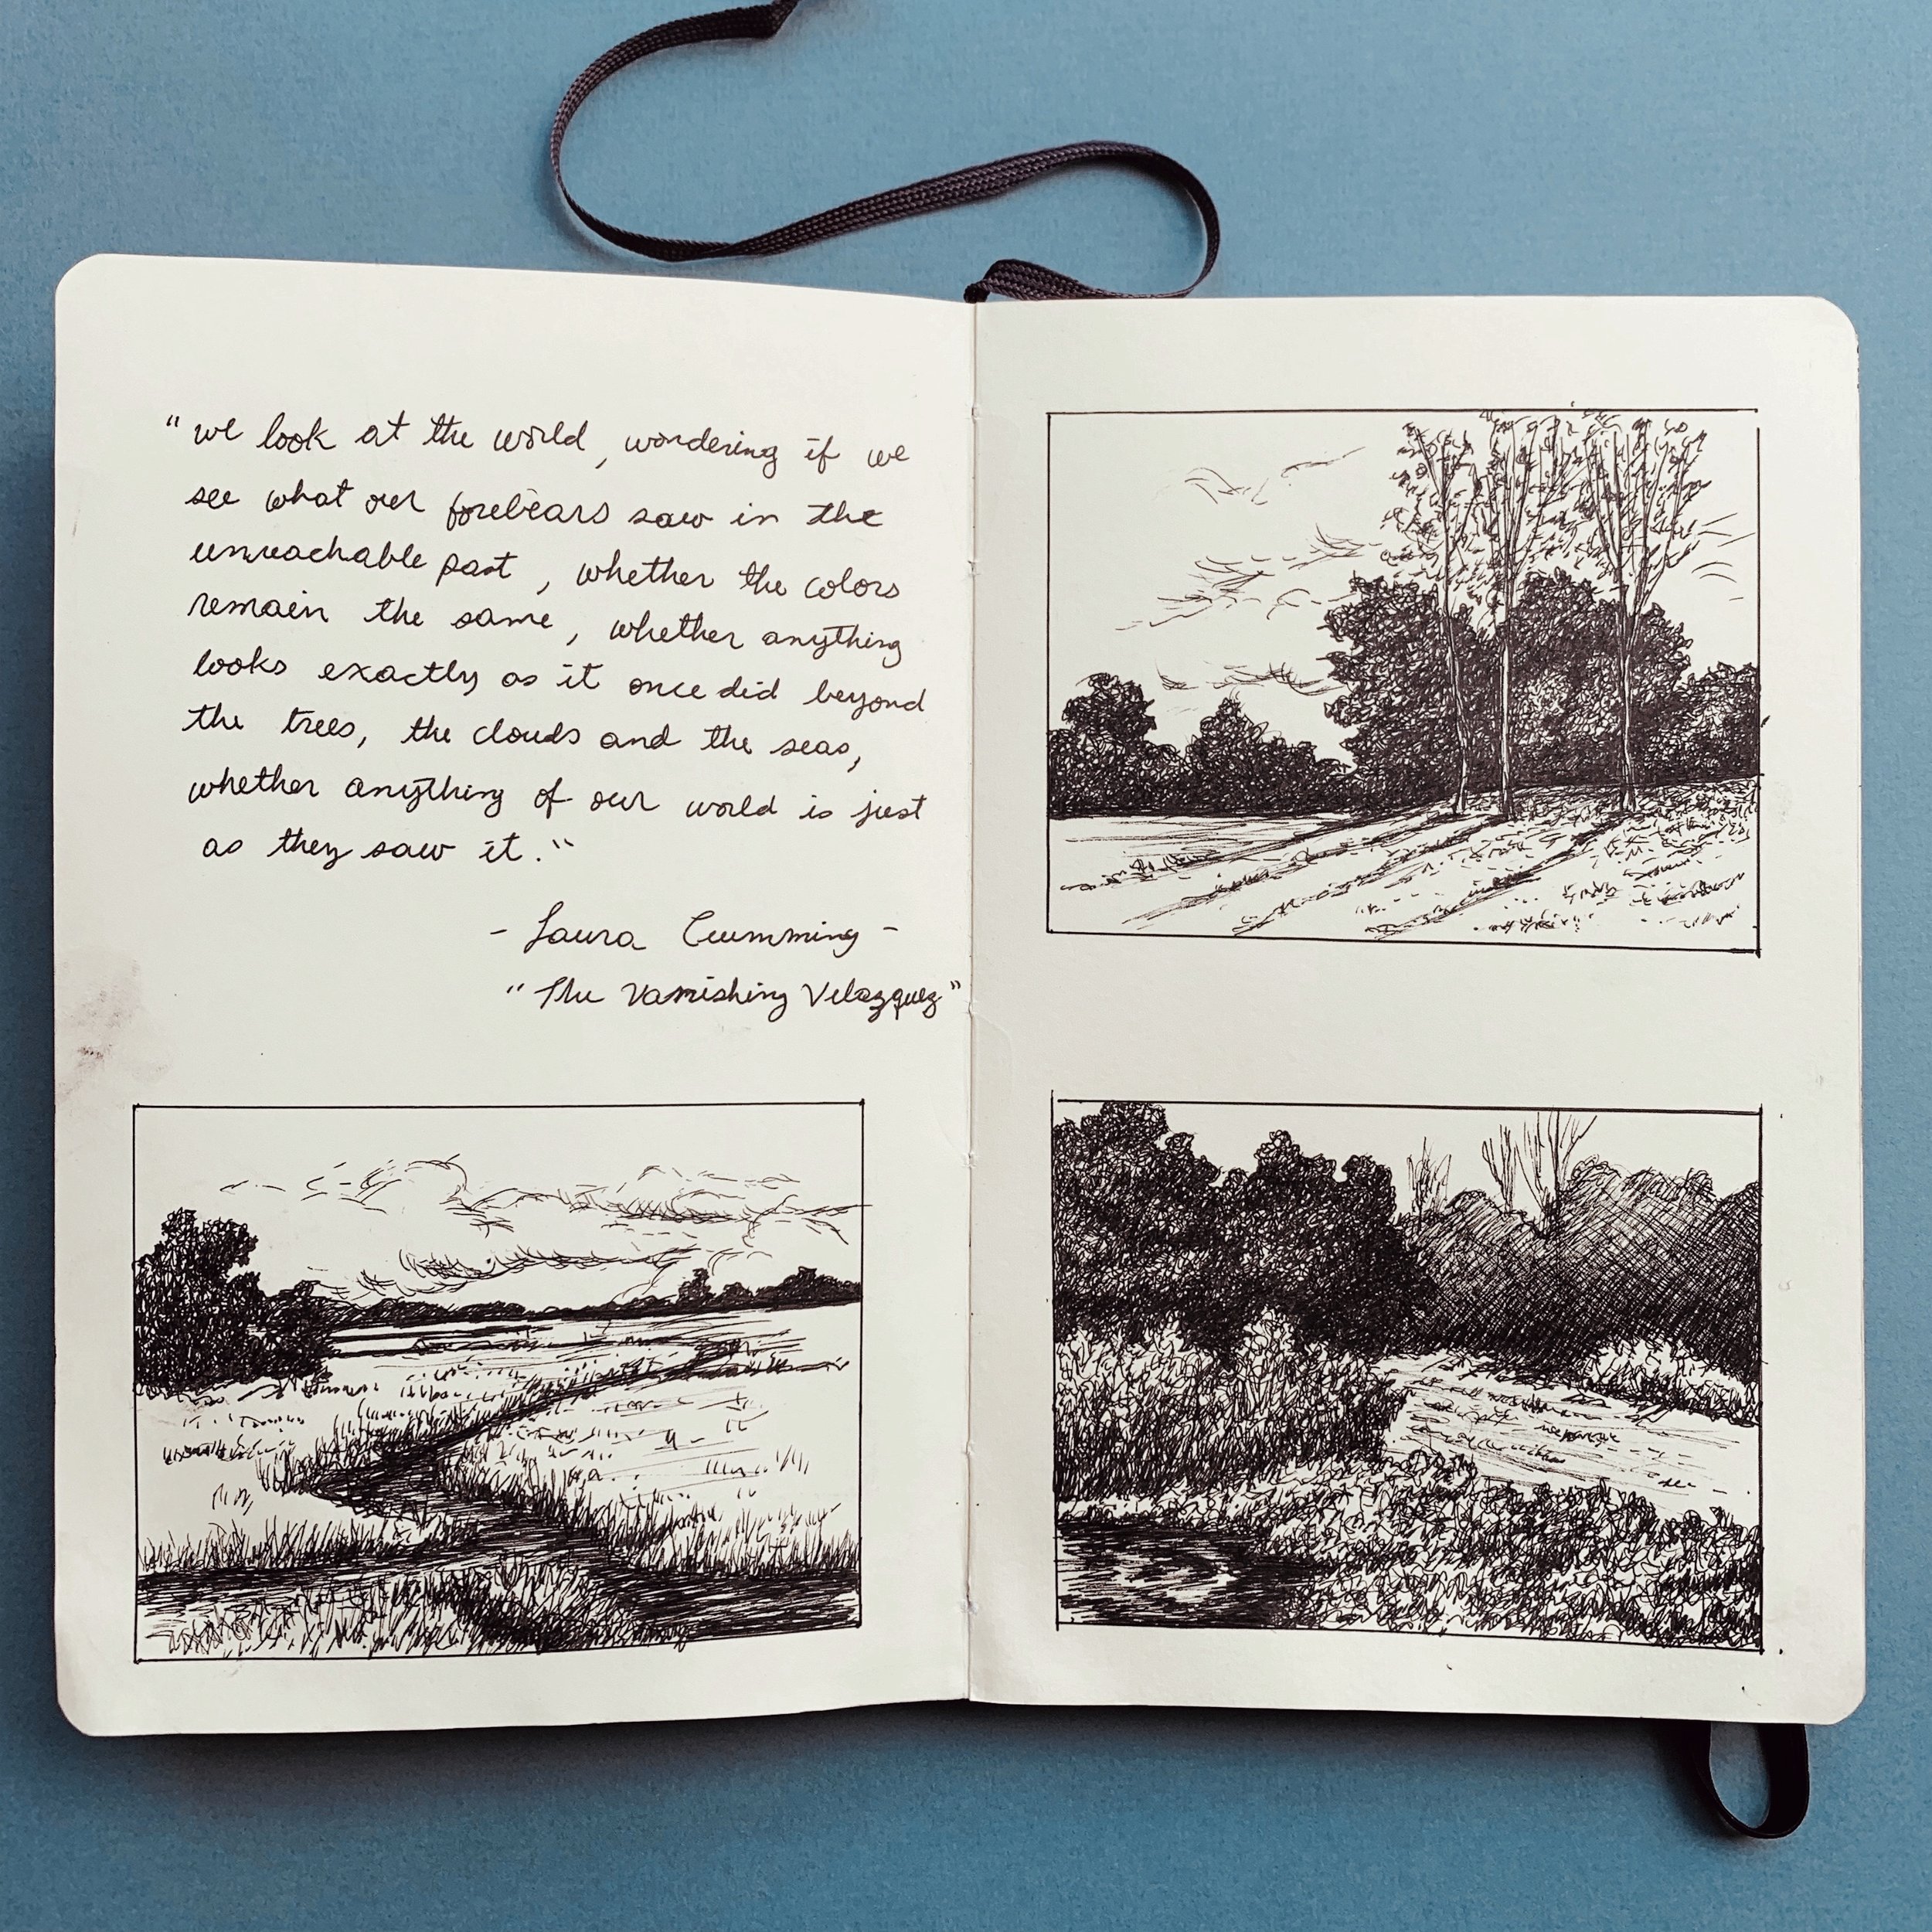 "we look at the world, wondering if we
see what our forebears saw in the
unreachable past, whether the colors
remain the same, whether anything
looks exactly as it once did beyond
the trees, the clouds and the seas,
whether anything of our world is just
as they saw it."
- Laura Cumming -
"The Vanishing Velazquez"